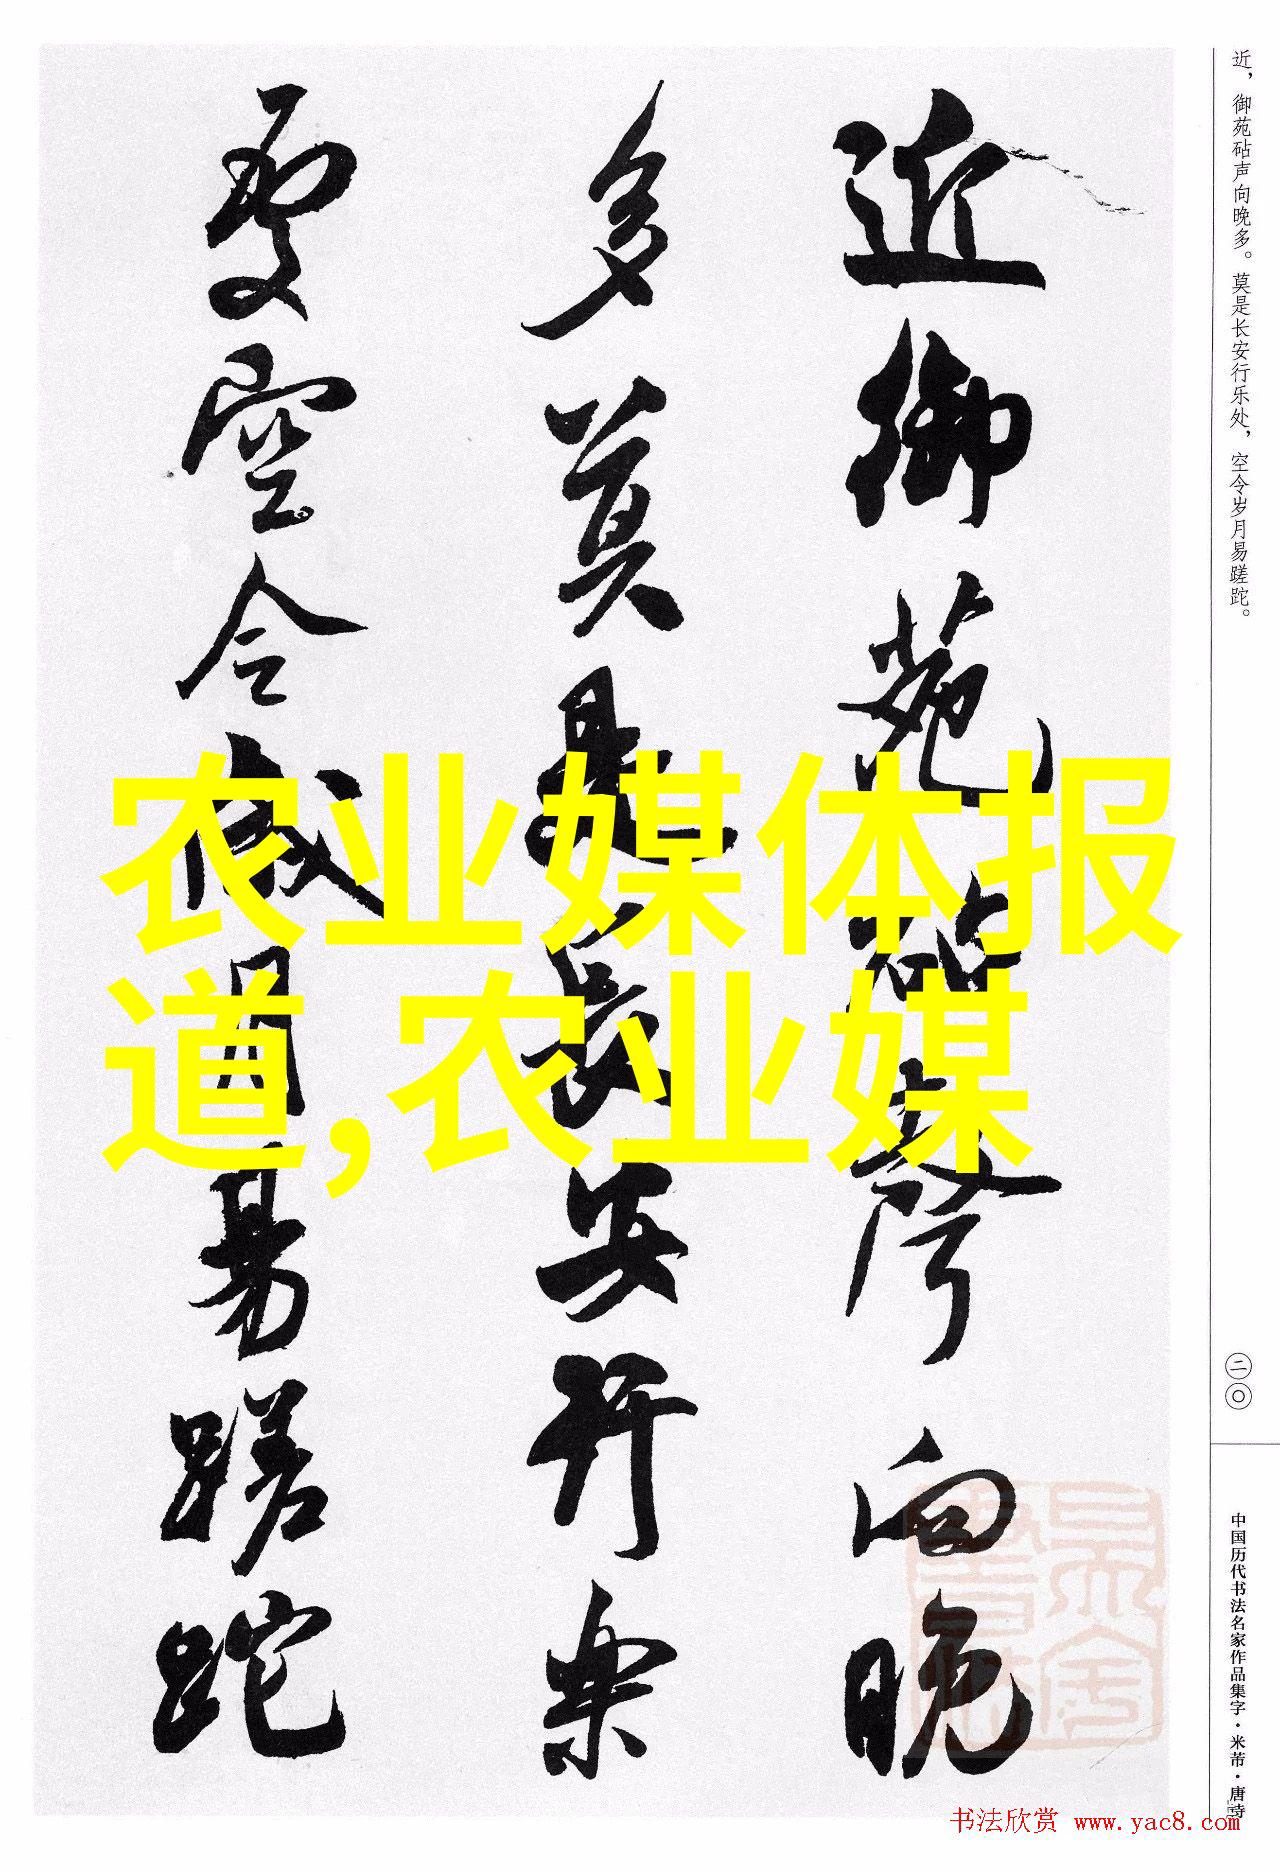 近，御苑砧声向晚多。莫是长安行乐处，空令岁月易蹉跎。
二〇
中国历代书法名家作品集字·米芾·唐诗
近御苑砧聲向晚
多莫是長安行樂
處空令歲月易蹉跎
农业媒体报
道,农业媒
书法欣赏 www.yac8.com